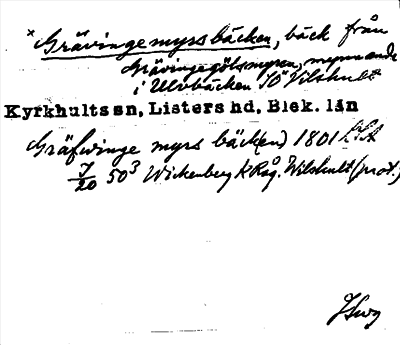 *Grävinge myrs bäcken, bäck från
Grävingegölsmyren, mynnande
i Ulvbäcken SÖ Vilshult
Kyrkhults sn, Listers hd, Blek. län
Gräfwinge myrs bäck(en) 1801 LSA
J/20 50³ Wickenberg KRåg. Wilshult (prot.)